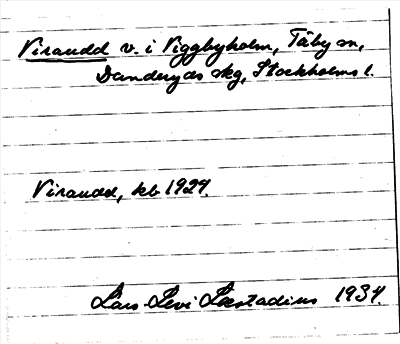 Viraudd v. i Viggbyholm, Täby sn,
Danderyds skg, Stockholms l.
Viraudd, kb 1927.
Lars-Levi Læstadius 1934.